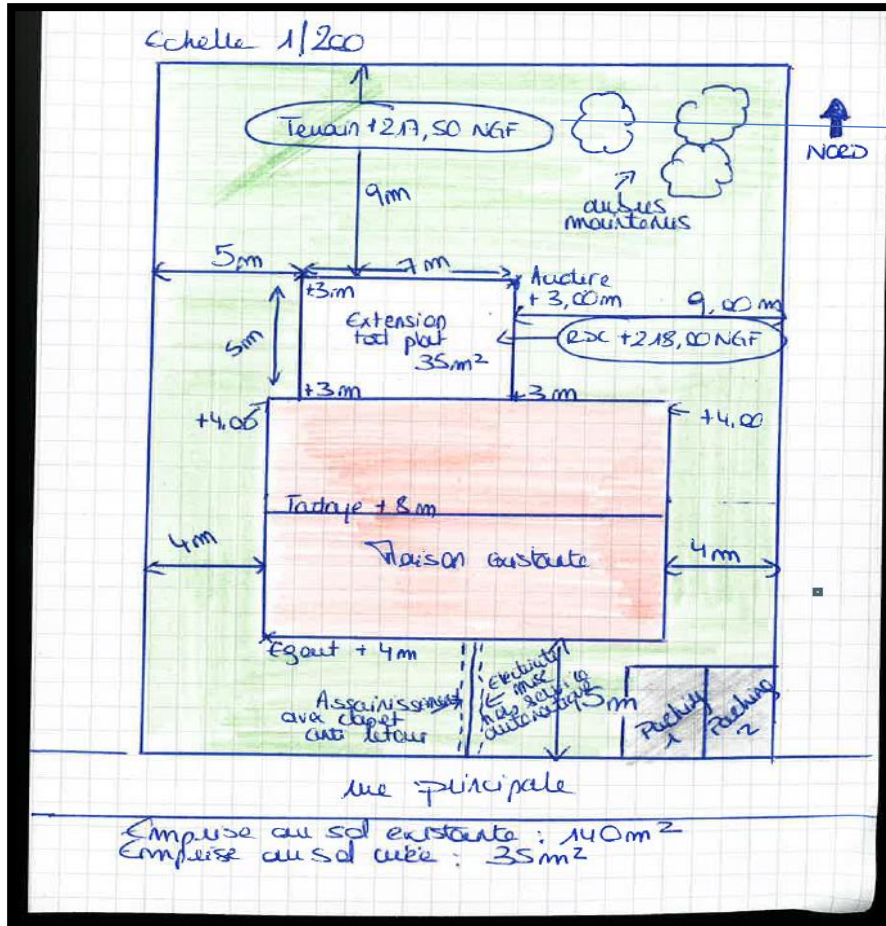 Echelle 1/200
Terrain +217,50 NGF
NORD
9m
arbres
maintenus
5m
7m
Acrotère
+3,00m
9,00m
+3m
Extension
toit plat
35m²
RDC +218,00NGF
5m
+3m
+3m
+4,00
+4,00
Faitage +8m
4m
Maison existante
4m
Egout +4m
Assainissement
avec clapet
anti retour
Electricité
mise
hors service
automatique
5m
Parking
1
Parking
2
rue principale
Emprise au sol existante : 140m²
Emprise au sol créée : 35m²